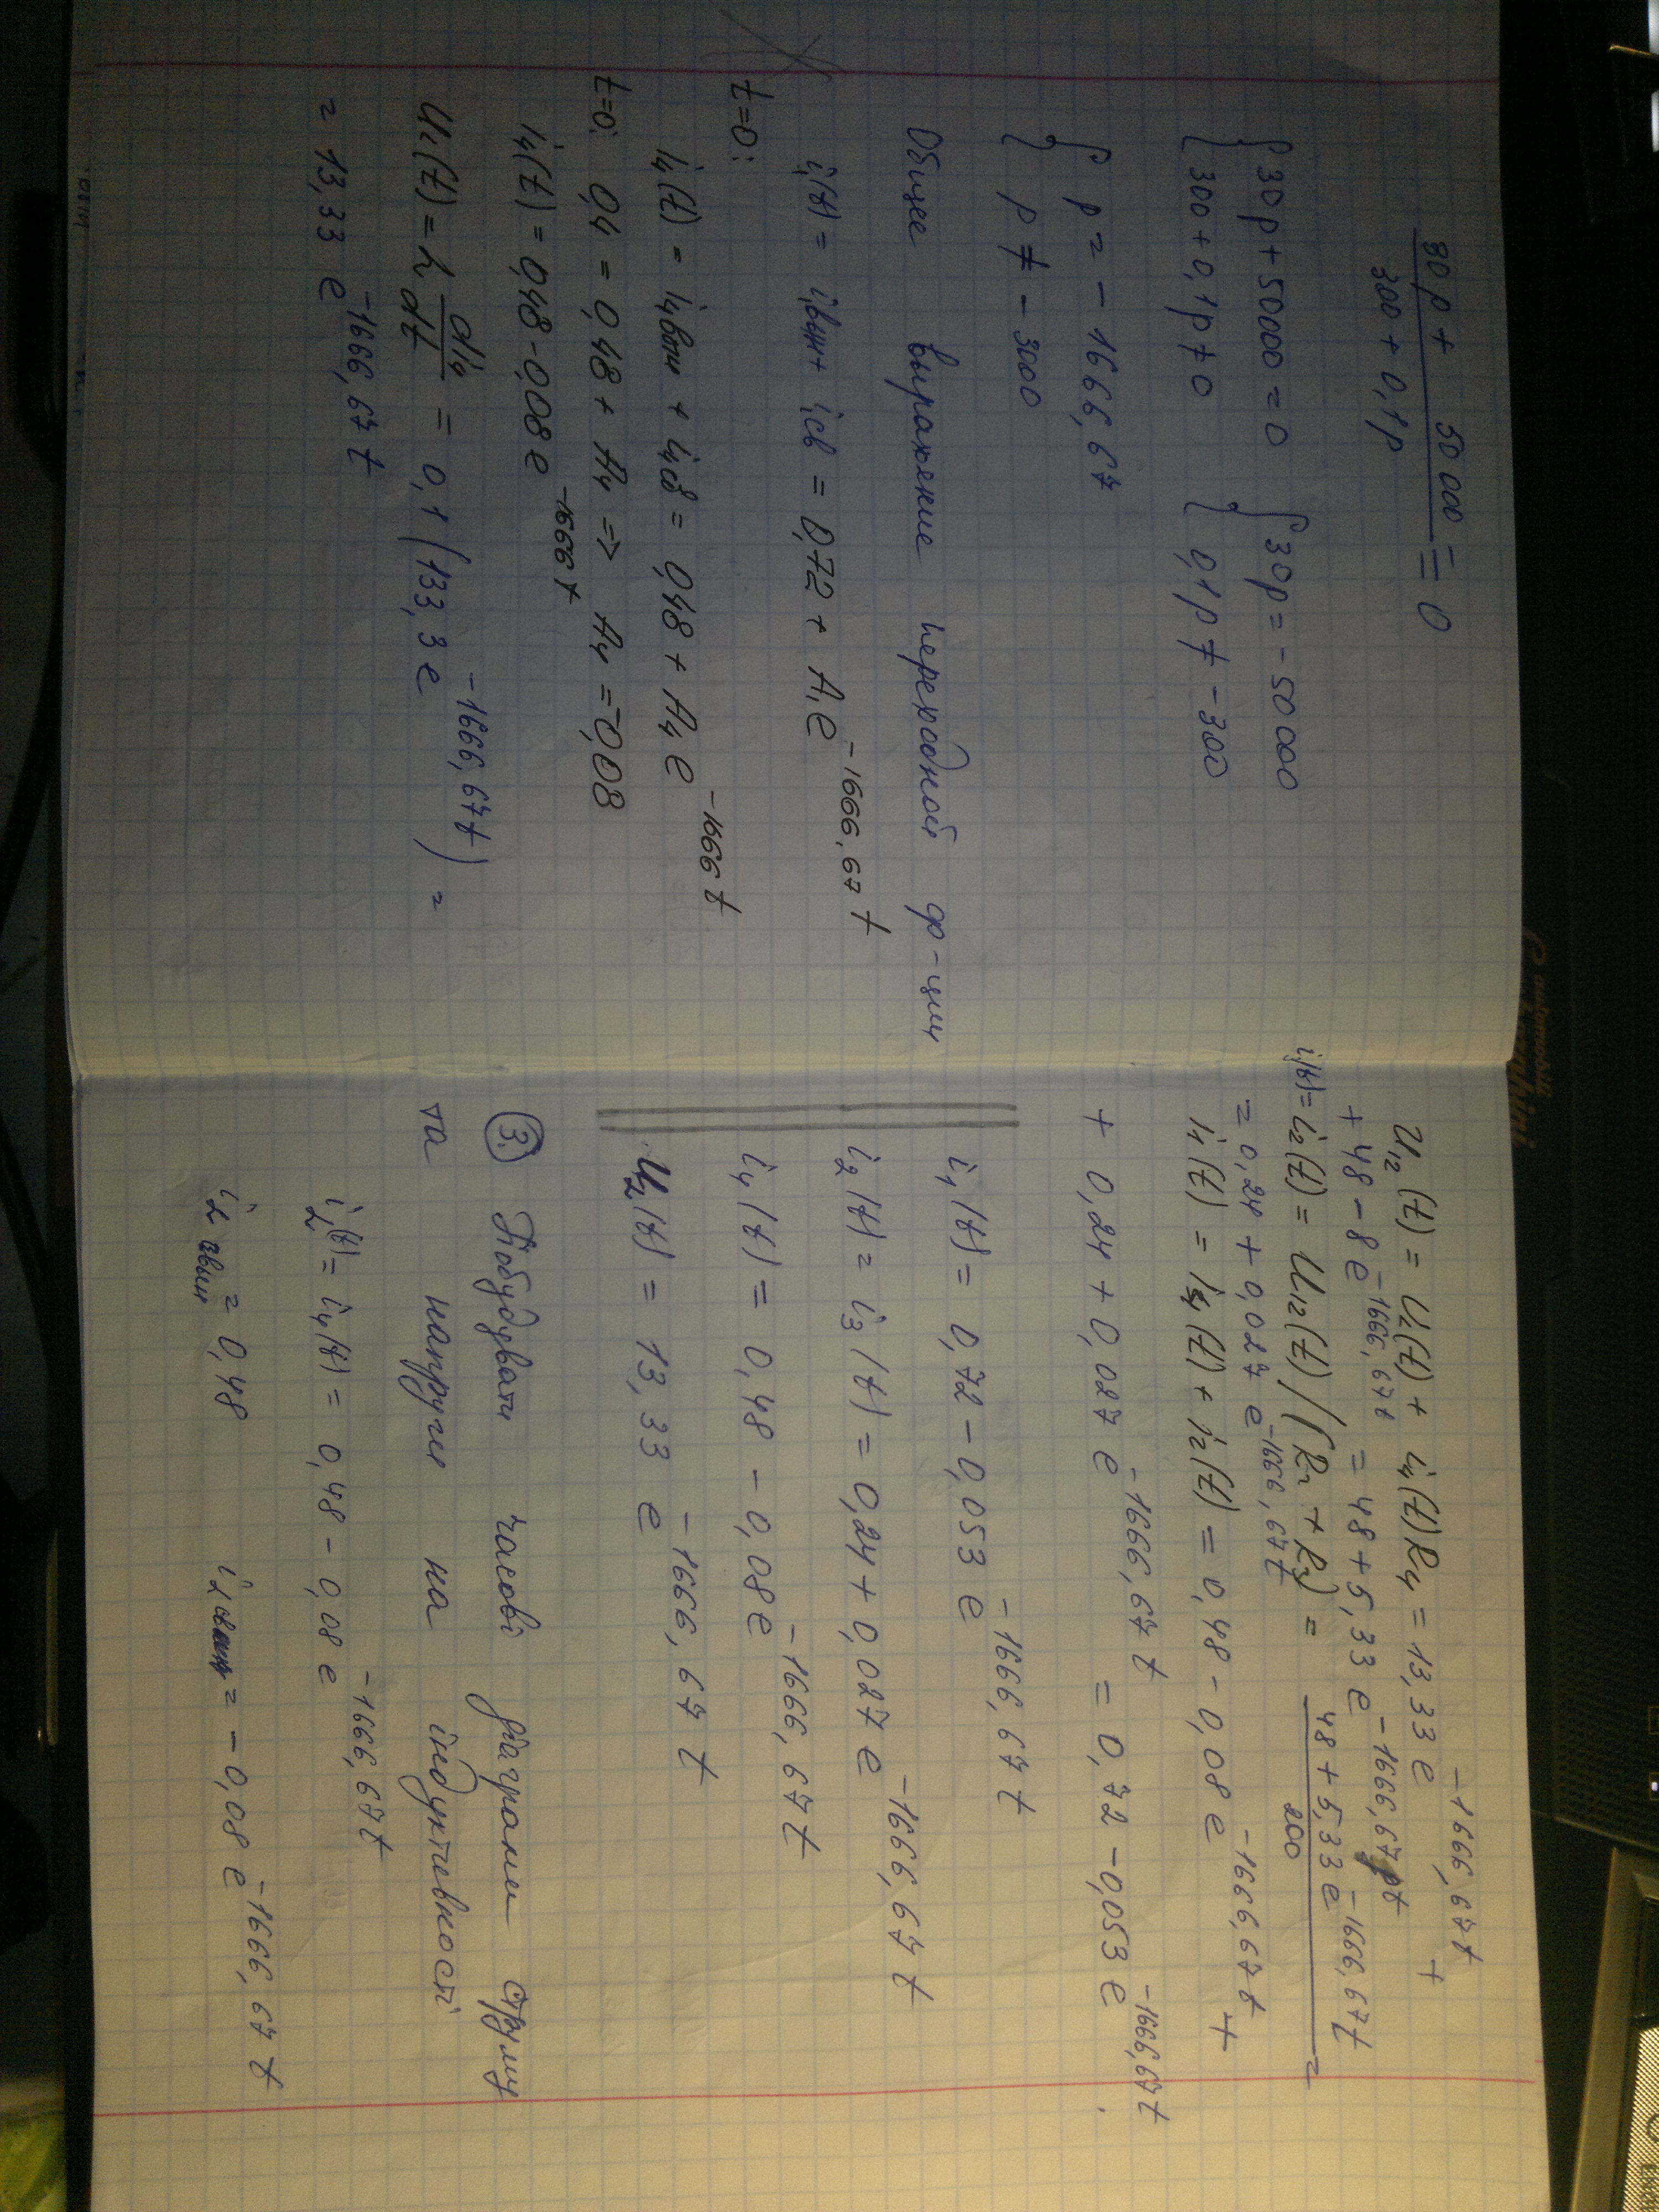 30p + 50 000 / 300 + 0,1p = 0
{ 30p + 50000 = 0 { 30p = - 50 000
{ 300 + 0,1p ≠ 0 { 0,1p ≠ - 300
{ p = - 1666,67
{ p ≠ - 3000
Общее выражение переходной ф-ции
i₁(t) = i₁вын + i₁св = 0,72 + A₁e^-1666,67 t
t=0:
i₄(t) = i₄вын + i₄св = 0,48 + A₄ e^-1666 t
t=0: 0,4 = 0,48 + A₄ => A₄ = -0,08
i₄(t) = 0,48 - 0,08 e^-1666 t
U_L(t) = L di₄/dt = 0,1 (133,3 e^-1666,67 t) =
= 13,33 e^-1666,67 t
U₁₂(t) = U_L(t) + i₄(t)R₄ = 13,33 e^-1666,67 t +
+ 48 - 8e^-1666,67 t = 48 + 5,33 e^-1666,67 t
i₃(t) = i₂(t) = U₁₂(t) / (R₂ + R₃) = 48 + 5,33 e^-1666,67 t / 200 =
= 0,24 + 0,027 e^-1666,67 t
i₁(t) = i₄(t) + i₂(t) = 0,48 - 0,08 e^-1666,67 t +
+ 0,24 + 0,027 e^-1666,67 t = 0,72 - 0,053 e^-1666,67 t.
i₁(t) = 0,72 - 0,053 e^-1666,67 t
i₂(t) = i₃(t) = 0,24 + 0,027 e^-1666,67 t
i₄(t) = 0,48 - 0,08 e^-1666,67 t
U_L(t) = 13,33 e^-1666,67 t
3. Побудувати часові діаграми струму
та напруги на індуктивності
i_L(t) = i₄(t) = 0,48 - 0,08 e^-1666,67 t
i_L вин = 0,48 = - 0,08 e^-1666,67 t